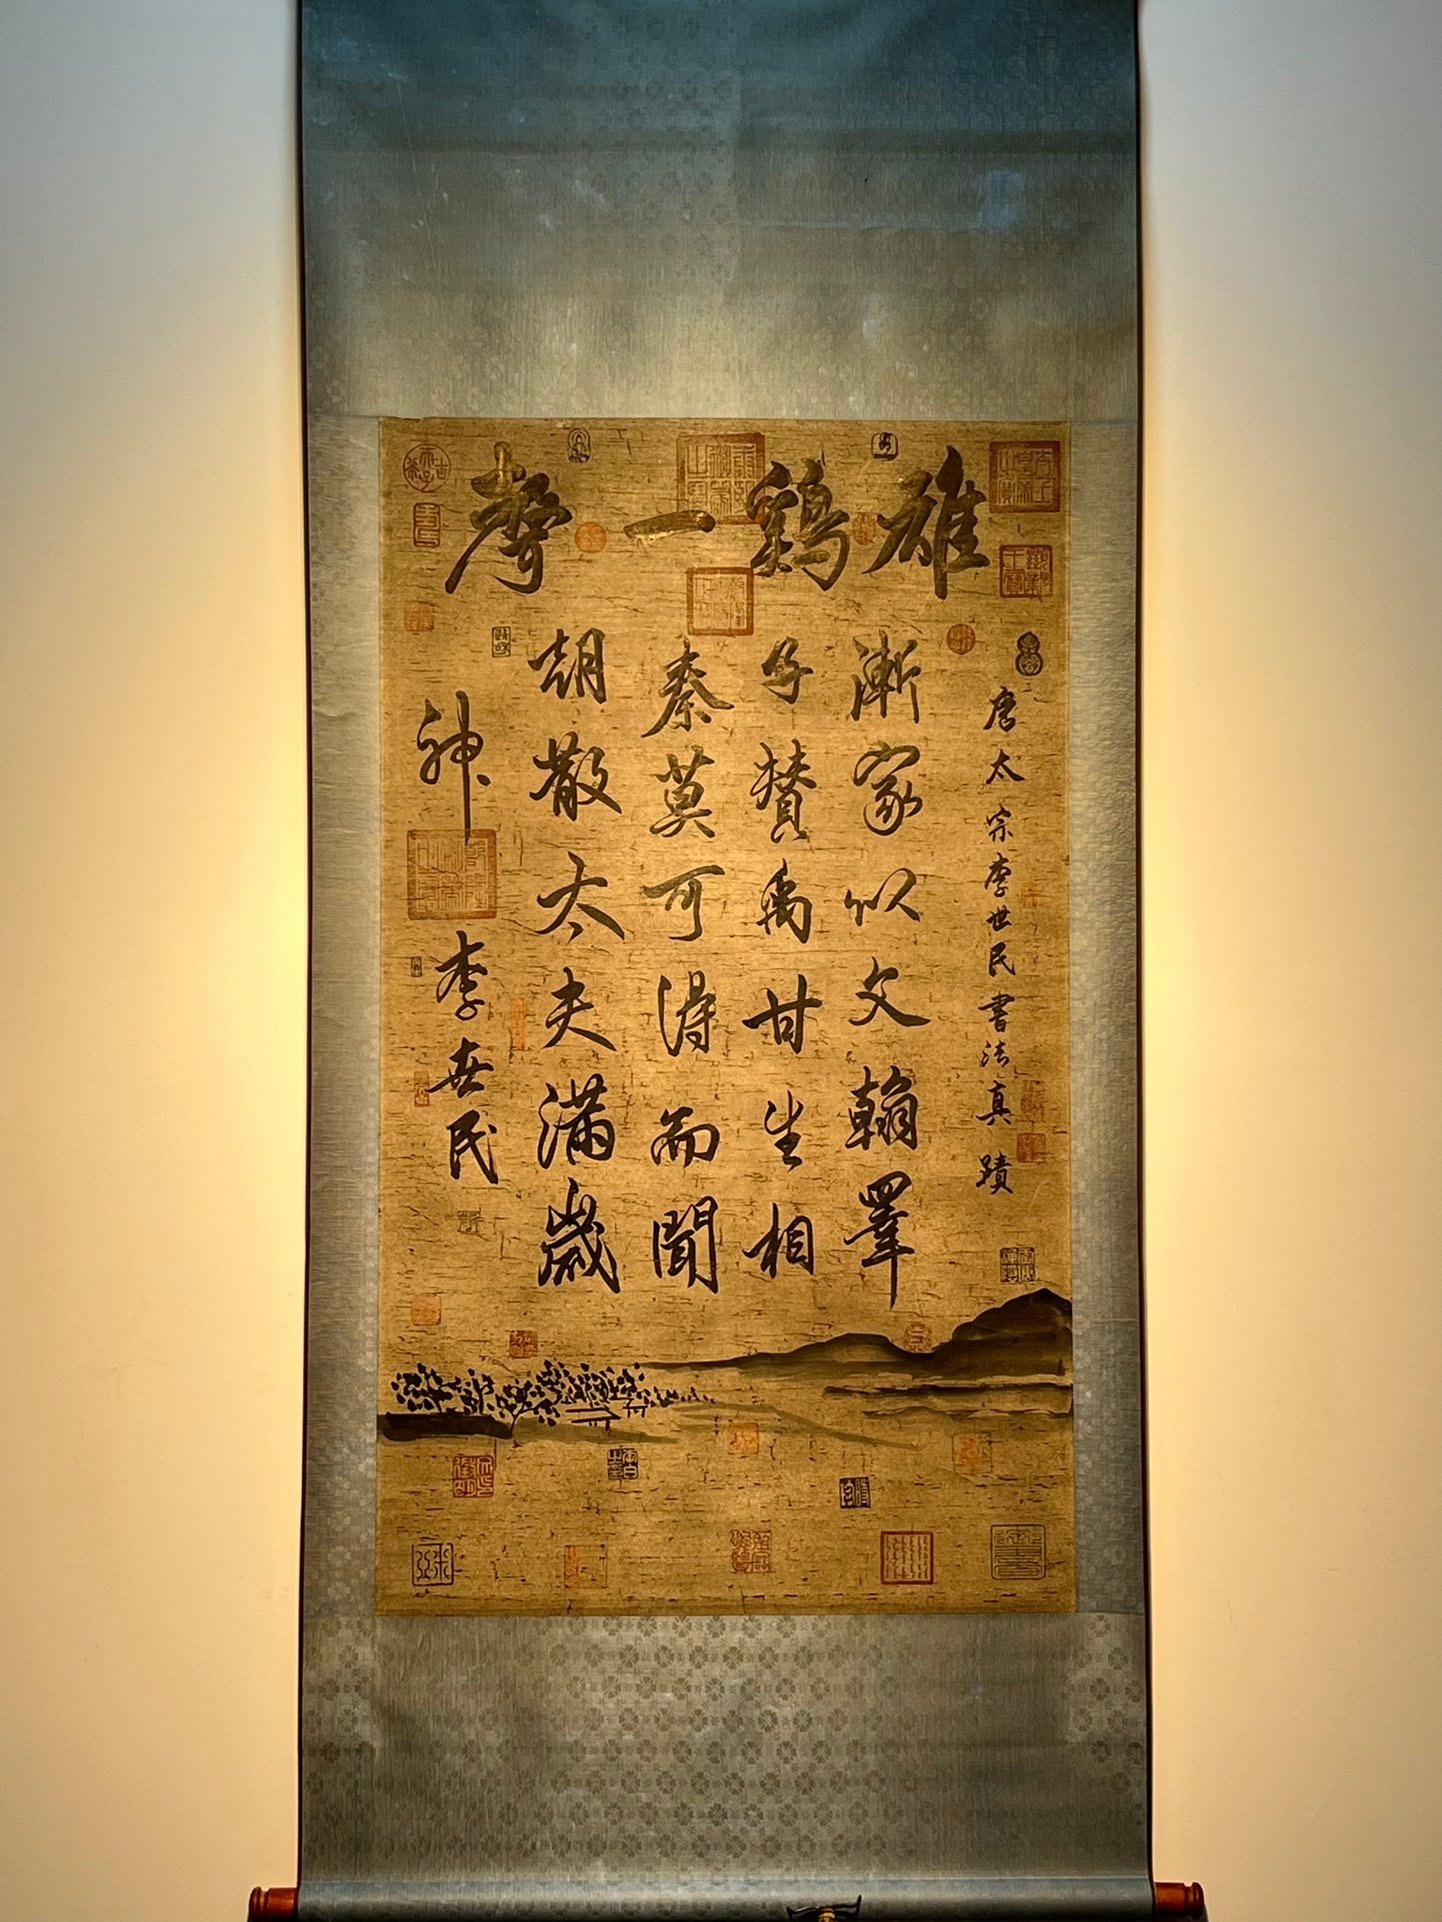 雄鷄一聲
唐太宗李世民書法真蹟
漸家以文翰罩
子贊禹甘生相
秦莫可得而聞
胡散太夫滿歲
神
李世民